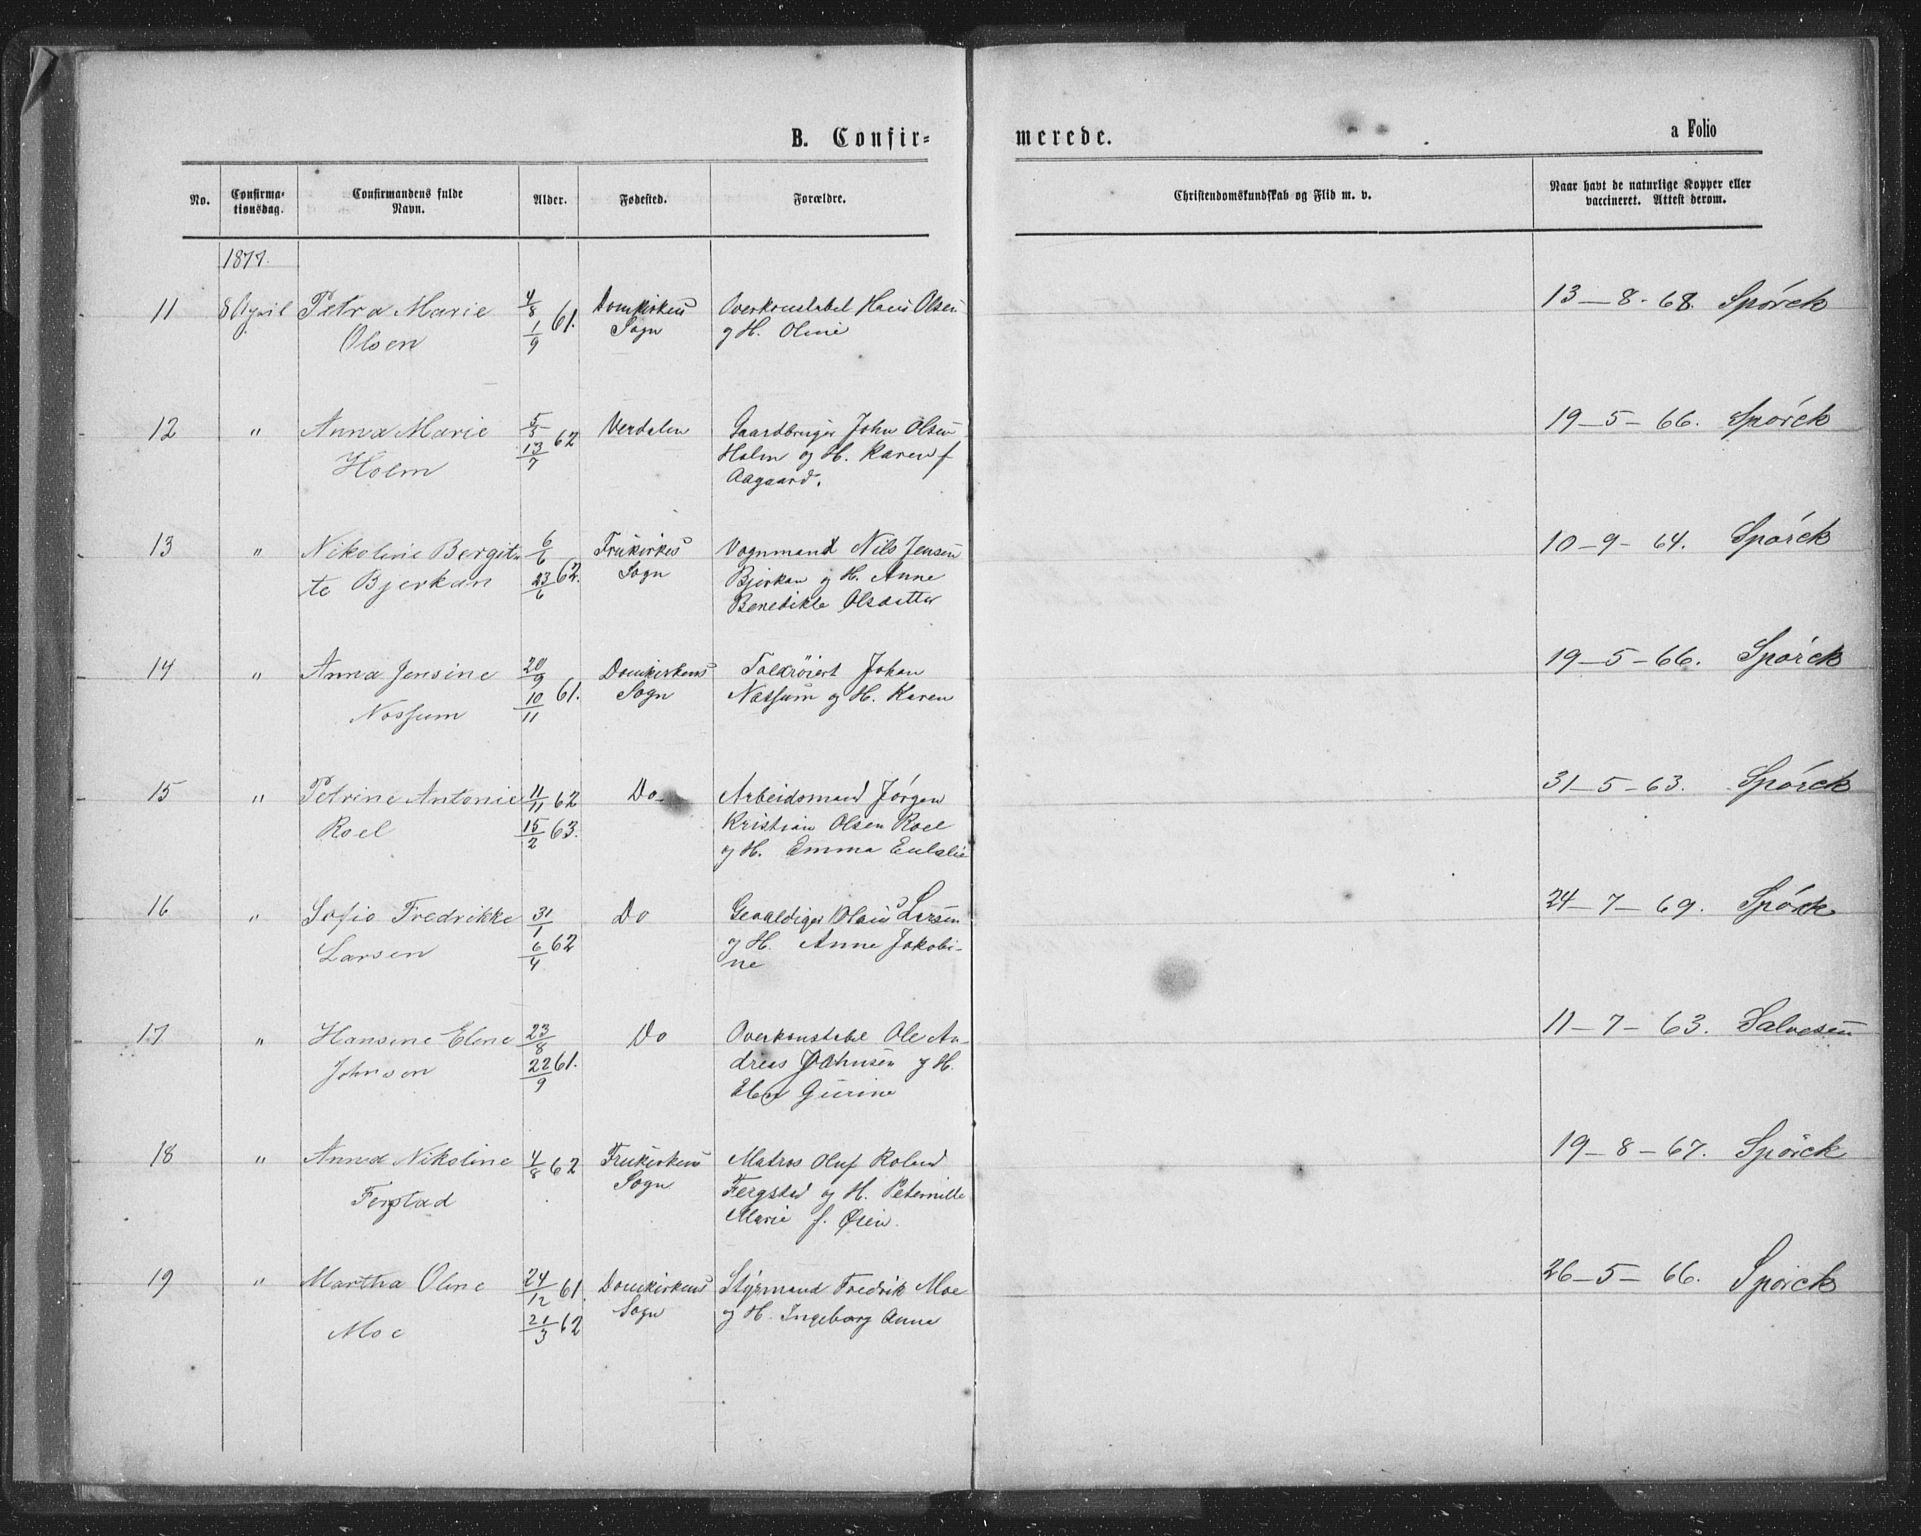 B. Confir=
merede.
a Folio
No.
Confirma-
tionsdag.
Confirmandens fulde
Navn.
Alder.
Fødested.
Forældre.
Christendomskundskab og Flid m. v.
Naar havt de naturlige Kopper eller
vaccineret. Attest derom.
1877.
11 8 April Petra Marie 4/8 61. Domkirkens Overkonstabel Hans Olsen 13-8-68. Spørck
Olsen 1/9 Sogn og H. Oline
12 " Anna Marie 5/5 62 Verdalen Gaardbruger John Olsen 19-5-66. Spørck
Holm 13/7 Holm og H. Karen f
Aagaard.
13 " Nikoline Bergit- 6/6 62. Fruekirkes Vognmand Nils Jensen 10-9-64. Spørck
te Bjerkan 23/6 Sogn Bjerkan og H. Anne
Benedikte Olsdatter
14 " Anna Jensine 20/9 61. Domkirkens Toldrøiert Johan 19-5-66. Spørck
Nossum 10/11 Sogn Nossum og H. Karen
15 " Petrine Antonie 11/11 62 Do Arbeidsmand Jørgen 31-5-63. Spørck
Roel 15/2 63. Kristian Olsen Roel
og H. Emma Eulalie
16 " Sofie Fredrikke 31/1 Do Gevaldiger Olaus Larsen 24-7-69. Spørck
Larsen 6/4 62 og H. Anne Jakobi-
ne
17 " Hansine Eline 23/8 Do Overkonstabel Ole An- 11-7-63. Salvesen
Johnsen 22/9 61. dreas Johnsen og H.
Elen Gurine
18 " Anna Nikoline 4/8 62 Fruekirkens Matros Oluf Roland 19-8-67. Spørck
Fergstad Sogn Fergstad og H. Peternille
Marie f. Øien.
19 " Martha Oline 24/12 61. Domkirkens Styrmand Fredrik Moe 26-5-66. Spørck
Moe 21/3 62 Sogn og H. Ingeborg Anne